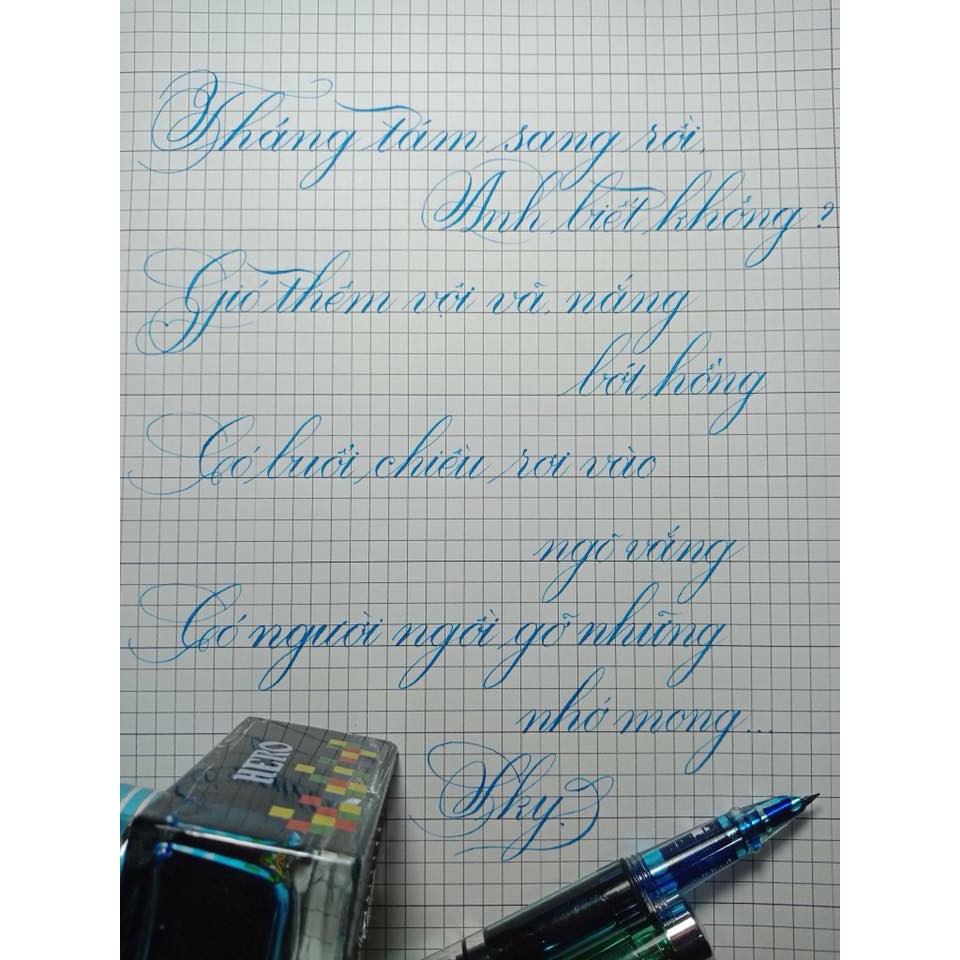 Tháng tám sang rồi,
Anh biết không?
Gió thêm vội vã, nắng
bớt hồng
Có buổi chiều rơi vào
ngõ vắng
Có người ngồi gõ những
nhớ mong...
Sky.
HERO